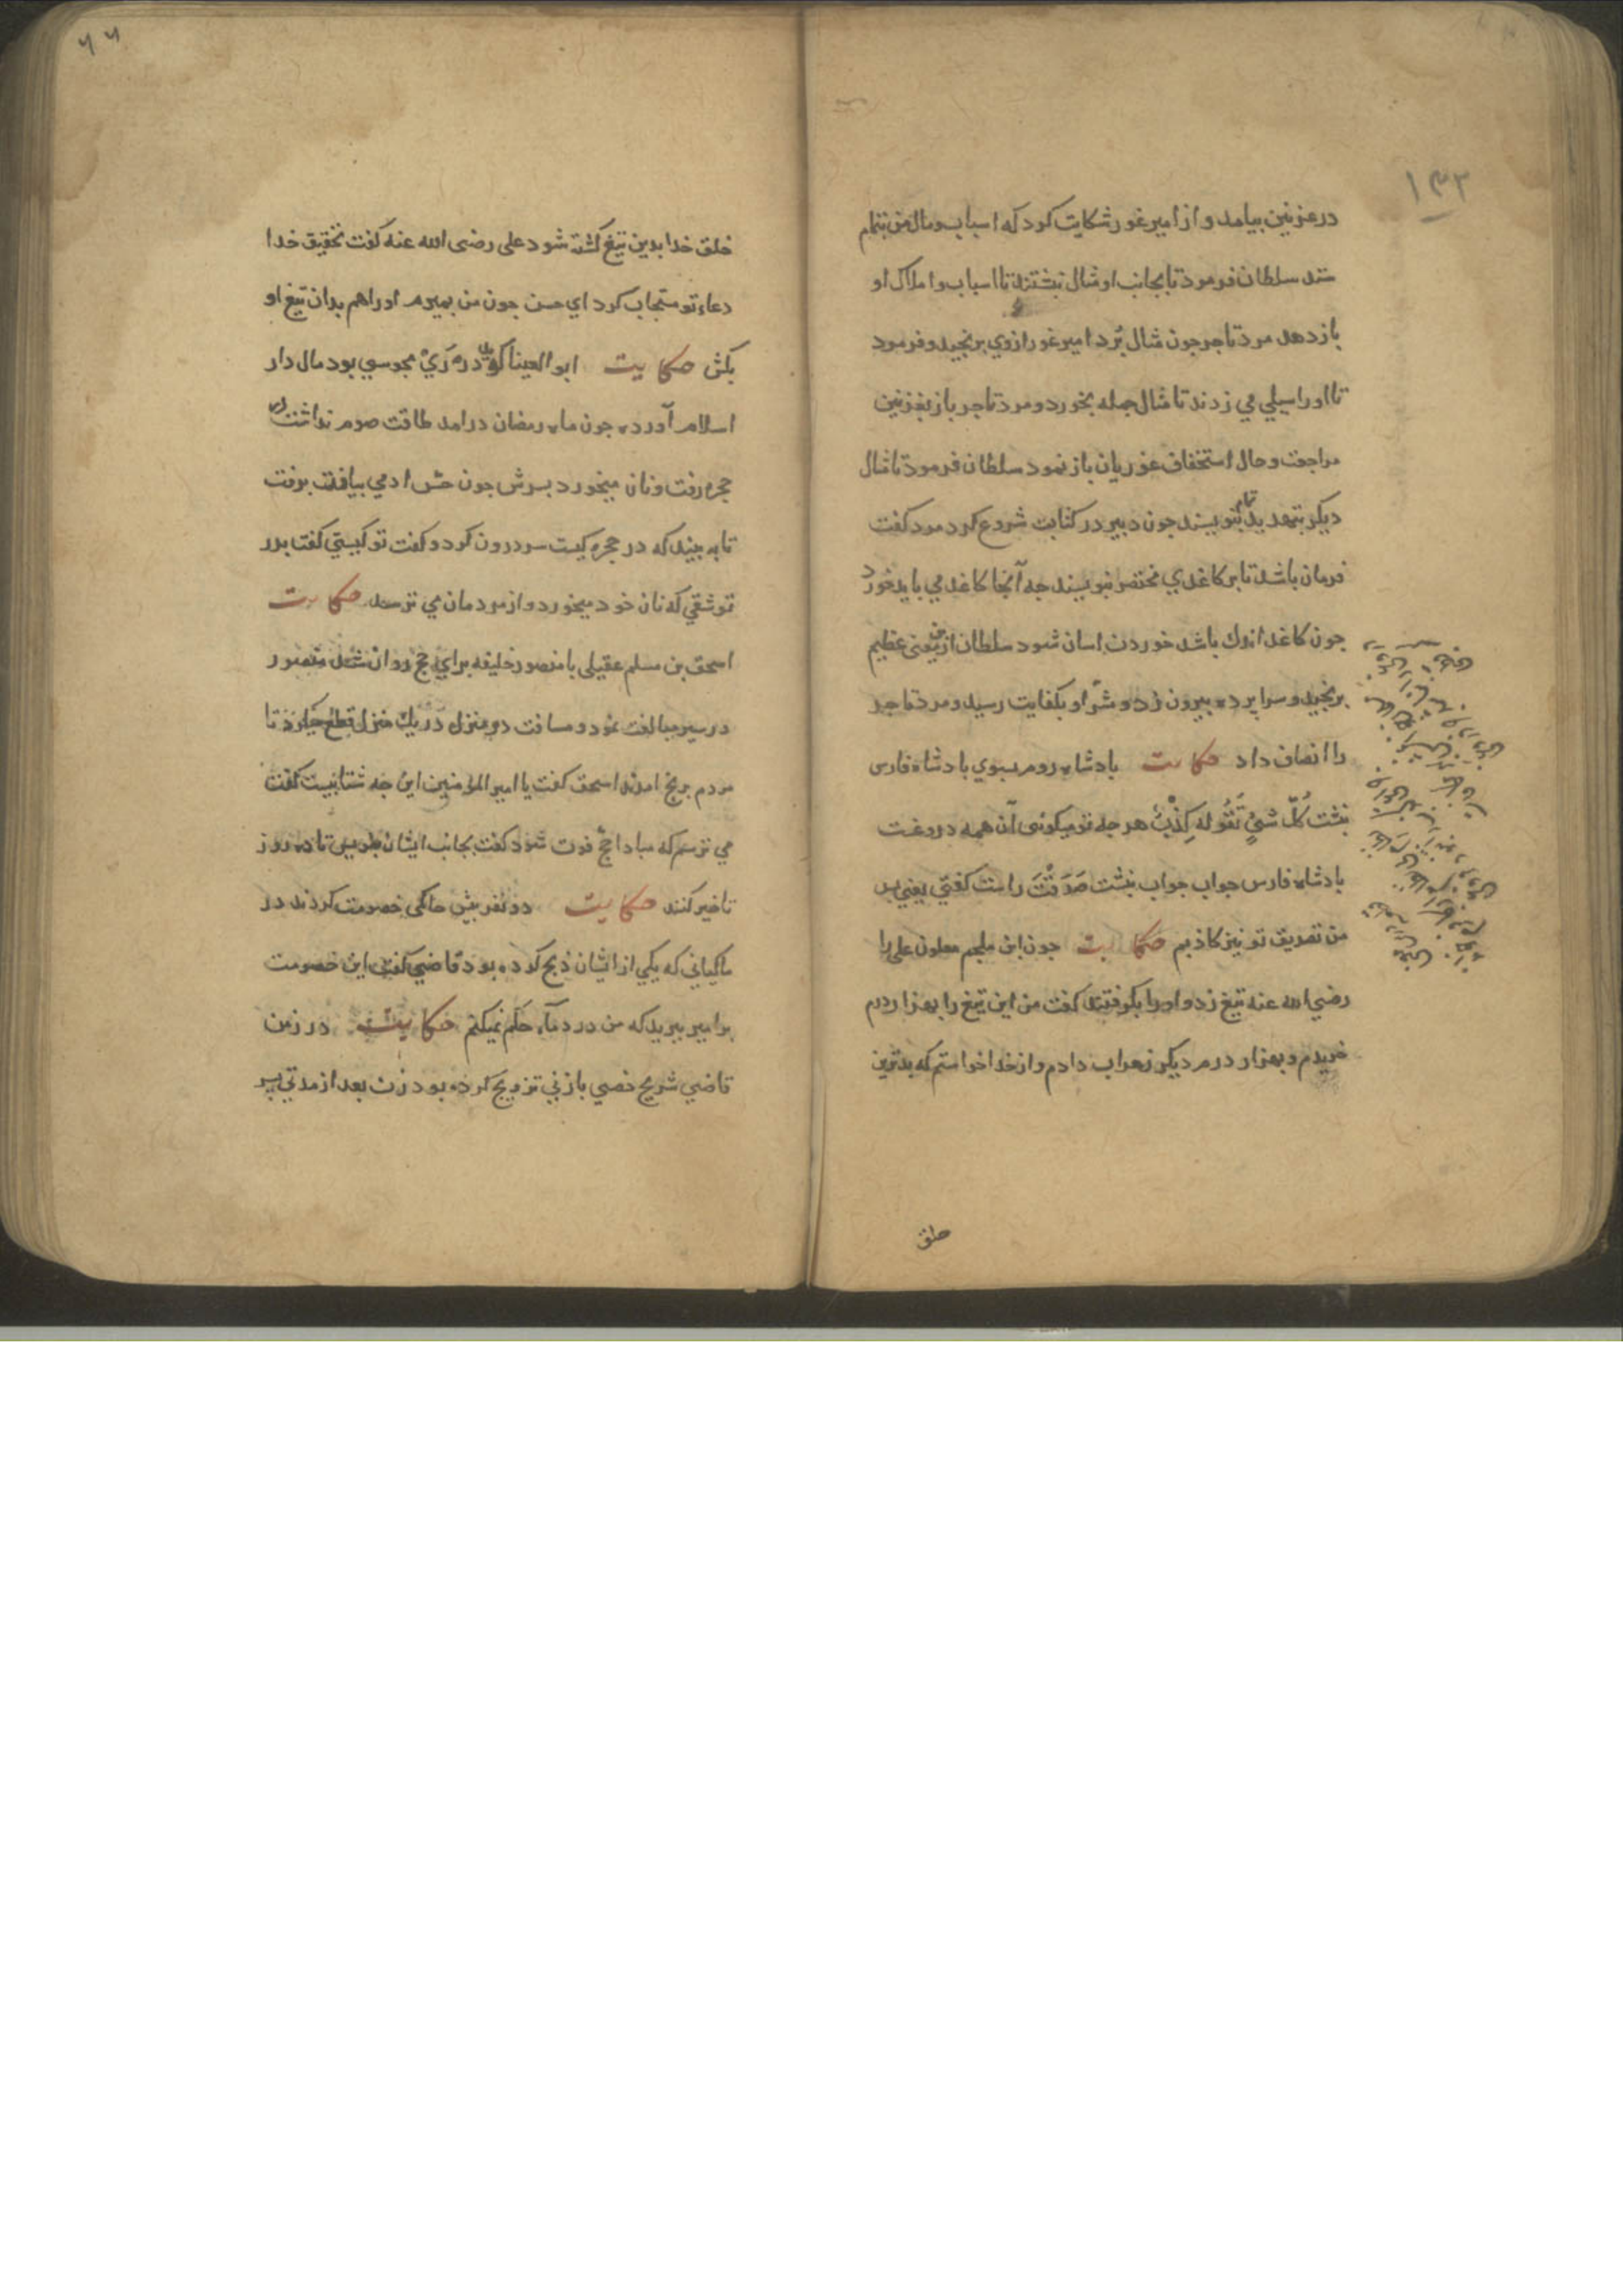 ۱۳۲
در غزنین بیامد و از امیر غور شکایت کرد که اسباب و مال من بتمام
ستد سلطان فرمود تا بجانب او مثال نبشتند تا اسباب و املاک او
باز دهد مرد تاجر چون مثال بُرد امیر غور ازوی برنجید و فرمود
تا اورا سیلی می زدند تا مثال جمله بخورد و مرد تاجر باز بغزنین
مراجعت و حال استخفاف غوریان باز نمود سلطان فرمود تا مثال
دیکر بتهدید تمام بنویسند جون دبیر در کتابت شروع کرد مرد کفت
فرمان باشد تا بر کاغدی مختصر بنویسند جه آنجا کاغد می باید خورد
جون کاغد اندک باشد خوردن اسان شود سلطان ازین معنی عظیم
برنجید و سرا پرده بیرون زد و شرّ او بکفایت رسید و مرد تاجر
را انصاف داد حکایت بادشاه روم بسوی بادشاه فارس
نبشت کُلّ شیْءٍ تَقُولُهُ کِذْبٌ هر جه تو میکوئی آن همه دروغست
بادشاه فارس جواب جواب نبشت صَدَقْتَ راست کفتی یعنی بس
من تصدیق تو نیز کاذبم حکایت جون ابن ملجم معلون علی را
رضی الله عنه تیغ زد و اورا بکرفتند کفت من این تیغ را بهزار درم
خریدم و بهزار درم دیکر زهراب دادم و از خدا خواستم که بدترین
خلق
۶۶
خلق خدا بدین تیغ کشته شود علی رضی الله عنه کفت تحقیق خدا
دعاء تو مستجاب کرد ای حسن جون من بمیرم اورا هم بدان تیغ او
بکش حکایت ابو العینا کوید در ری مجوسی بود مال دار
اسلام آورده جون ماه رمضان درامد طاقت صوم نداشت در
حجره رفت و نان میخورد بسرش جون حس ادمی بیافت برفت
تا به بیند که در حجره کیست سر درون کرد و کفت تو کیستی کفتا بدر
تو شقی که نان خود میخورد و از مردمان می ترسد حکایت
اسحق بن مسلم عقیلی با منصور خلیفه برای حج روان شد منصور
در سیر مبالغت نمود و مسافت دو منزل در یک منزل قطع میکرد تا
مردم برنج امدند اسحق کفت یا امیر المؤمنین این جه شتابیست کفت
می ترسم که مبادا حج فوت شود کفت بجانب ایشان بنویس تا ده روز
تاخیر کنند حکایت دو نفر پیش حاکمی خصومت کردند در
ماکیانی که یکی از ایشان ذبح کرده بود قاضی کفت این خصومت
بر امیر ببرید که من در دماء حکم نمیکنم حکایت در زمن
قاضی شریح خصی با زنی تزویج کرده بود زن بعد از مدتی بسر